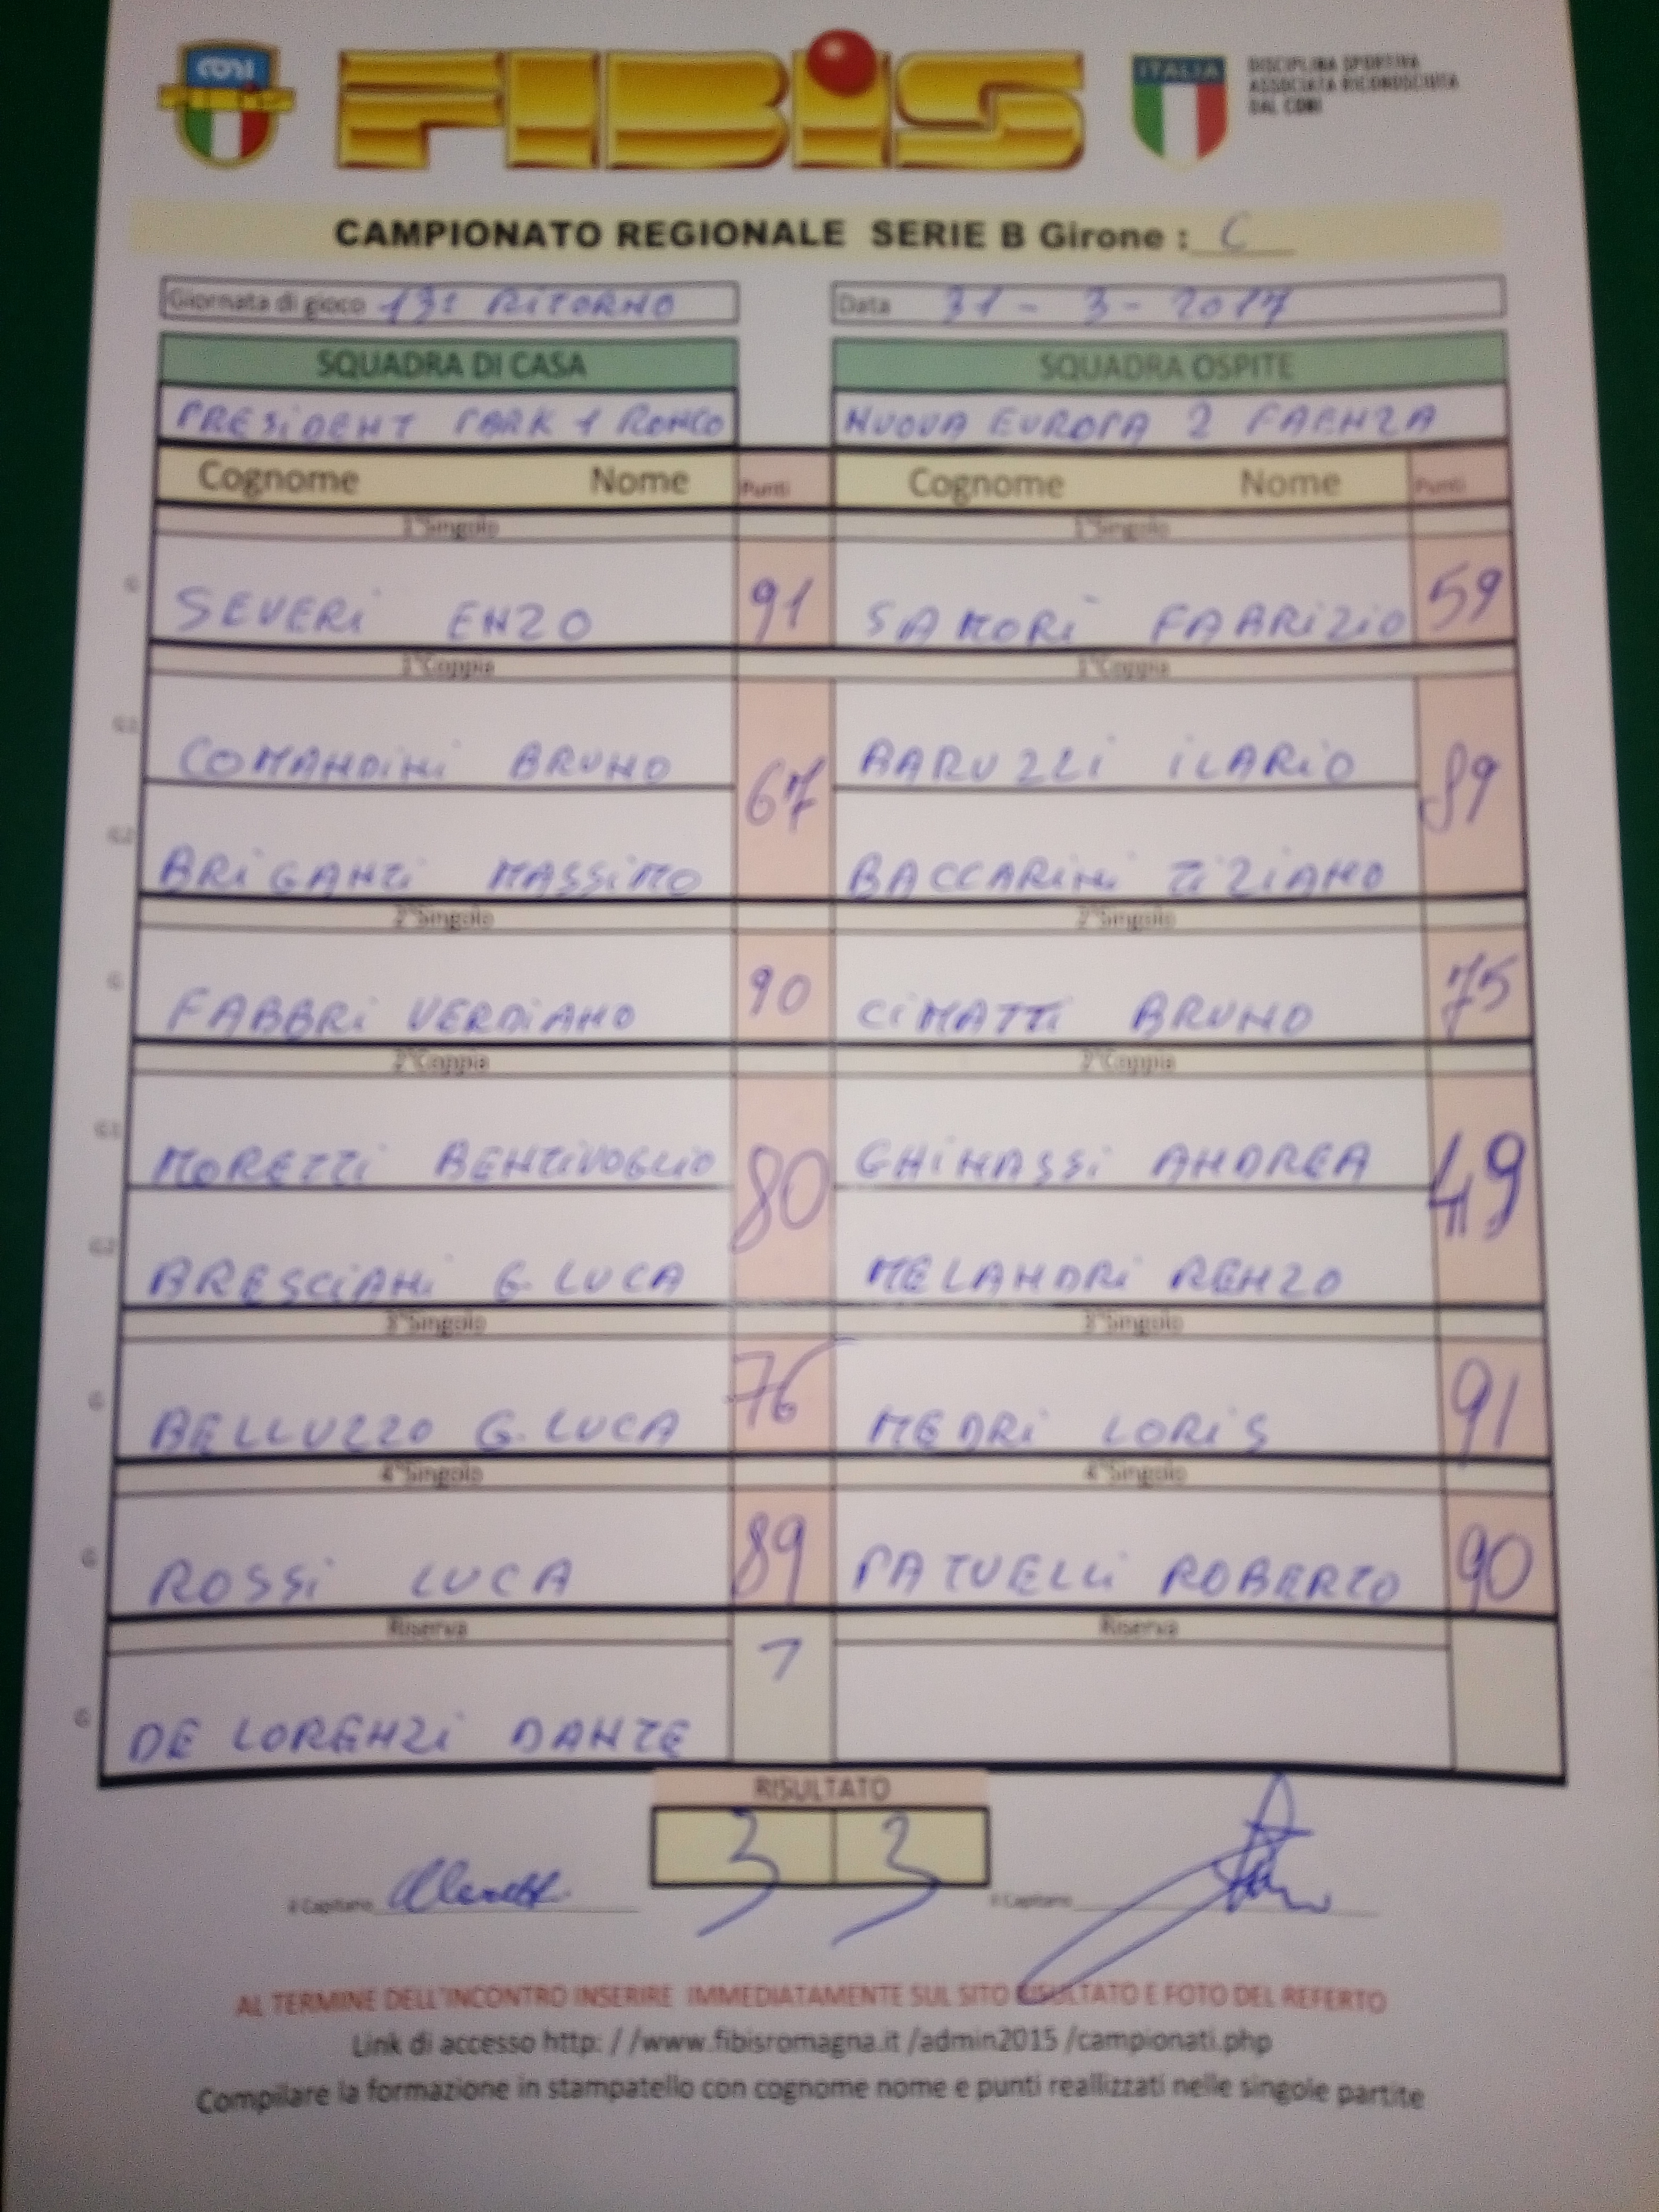 CONI FIBIS ITALIA DISCIPLINA SPORTIVA
ASSOCIATA RICONOSCIUTA
DAL CONI
CAMPIONATO REGIONALE SERIE B Girone : C
Giornata di gioco 13ª RITORNO Data 31 - 3 - 2017
SQUADRA DI CASA SQUADRA OSPITE
PRESIDENT PARK 1 RONCO NUOVA EUROPA 2 FAENZA
Cognome Nome Punti Cognome Nome Punti
1°Singolo 1°Singolo
G SEVERI ENZO 91 SAMORÌ FABRIZIO 59
1°Coppia 1°Coppia
G1 COMANDINI BRUNO 67 BARUZZI ILARIO 89
G2 BRIGANTI MASSIMO BACCARINI TIZIANO
2°Singolo 2°Singolo
G FABBRI VERDIANO 90 CIMATTI BRUNO 75
2°Coppia 2°Coppia
G1 MORETTI BENTIVOGLIO 80 GHINASSI ANDREA 49
G2 BRESCIANI G.LUCA MELANDRI RENZO
3°Singolo 3°Singolo
G BELLUZZO G.LUCA 76 MEDRI LORIS 91
4°Singolo 4°Singolo
G ROSSI LUCA 89 PATUELLI ROBERTO 90
Riserva Riserva
G DE LORENZI DANTE
RISULTATO
3 3
il Capitano il Capitano
AL TERMINE DELL'INCONTRO INSERIRE IMMEDIATAMENTE SUL SITO RISULTATO E FOTO DEL REFERTO
Link di accesso http: / /www.fibisromagna.it /admin2015 /campionati.php
Compilare la formazione in stampatello con cognome nome e punti reallizzati nelle singole partite